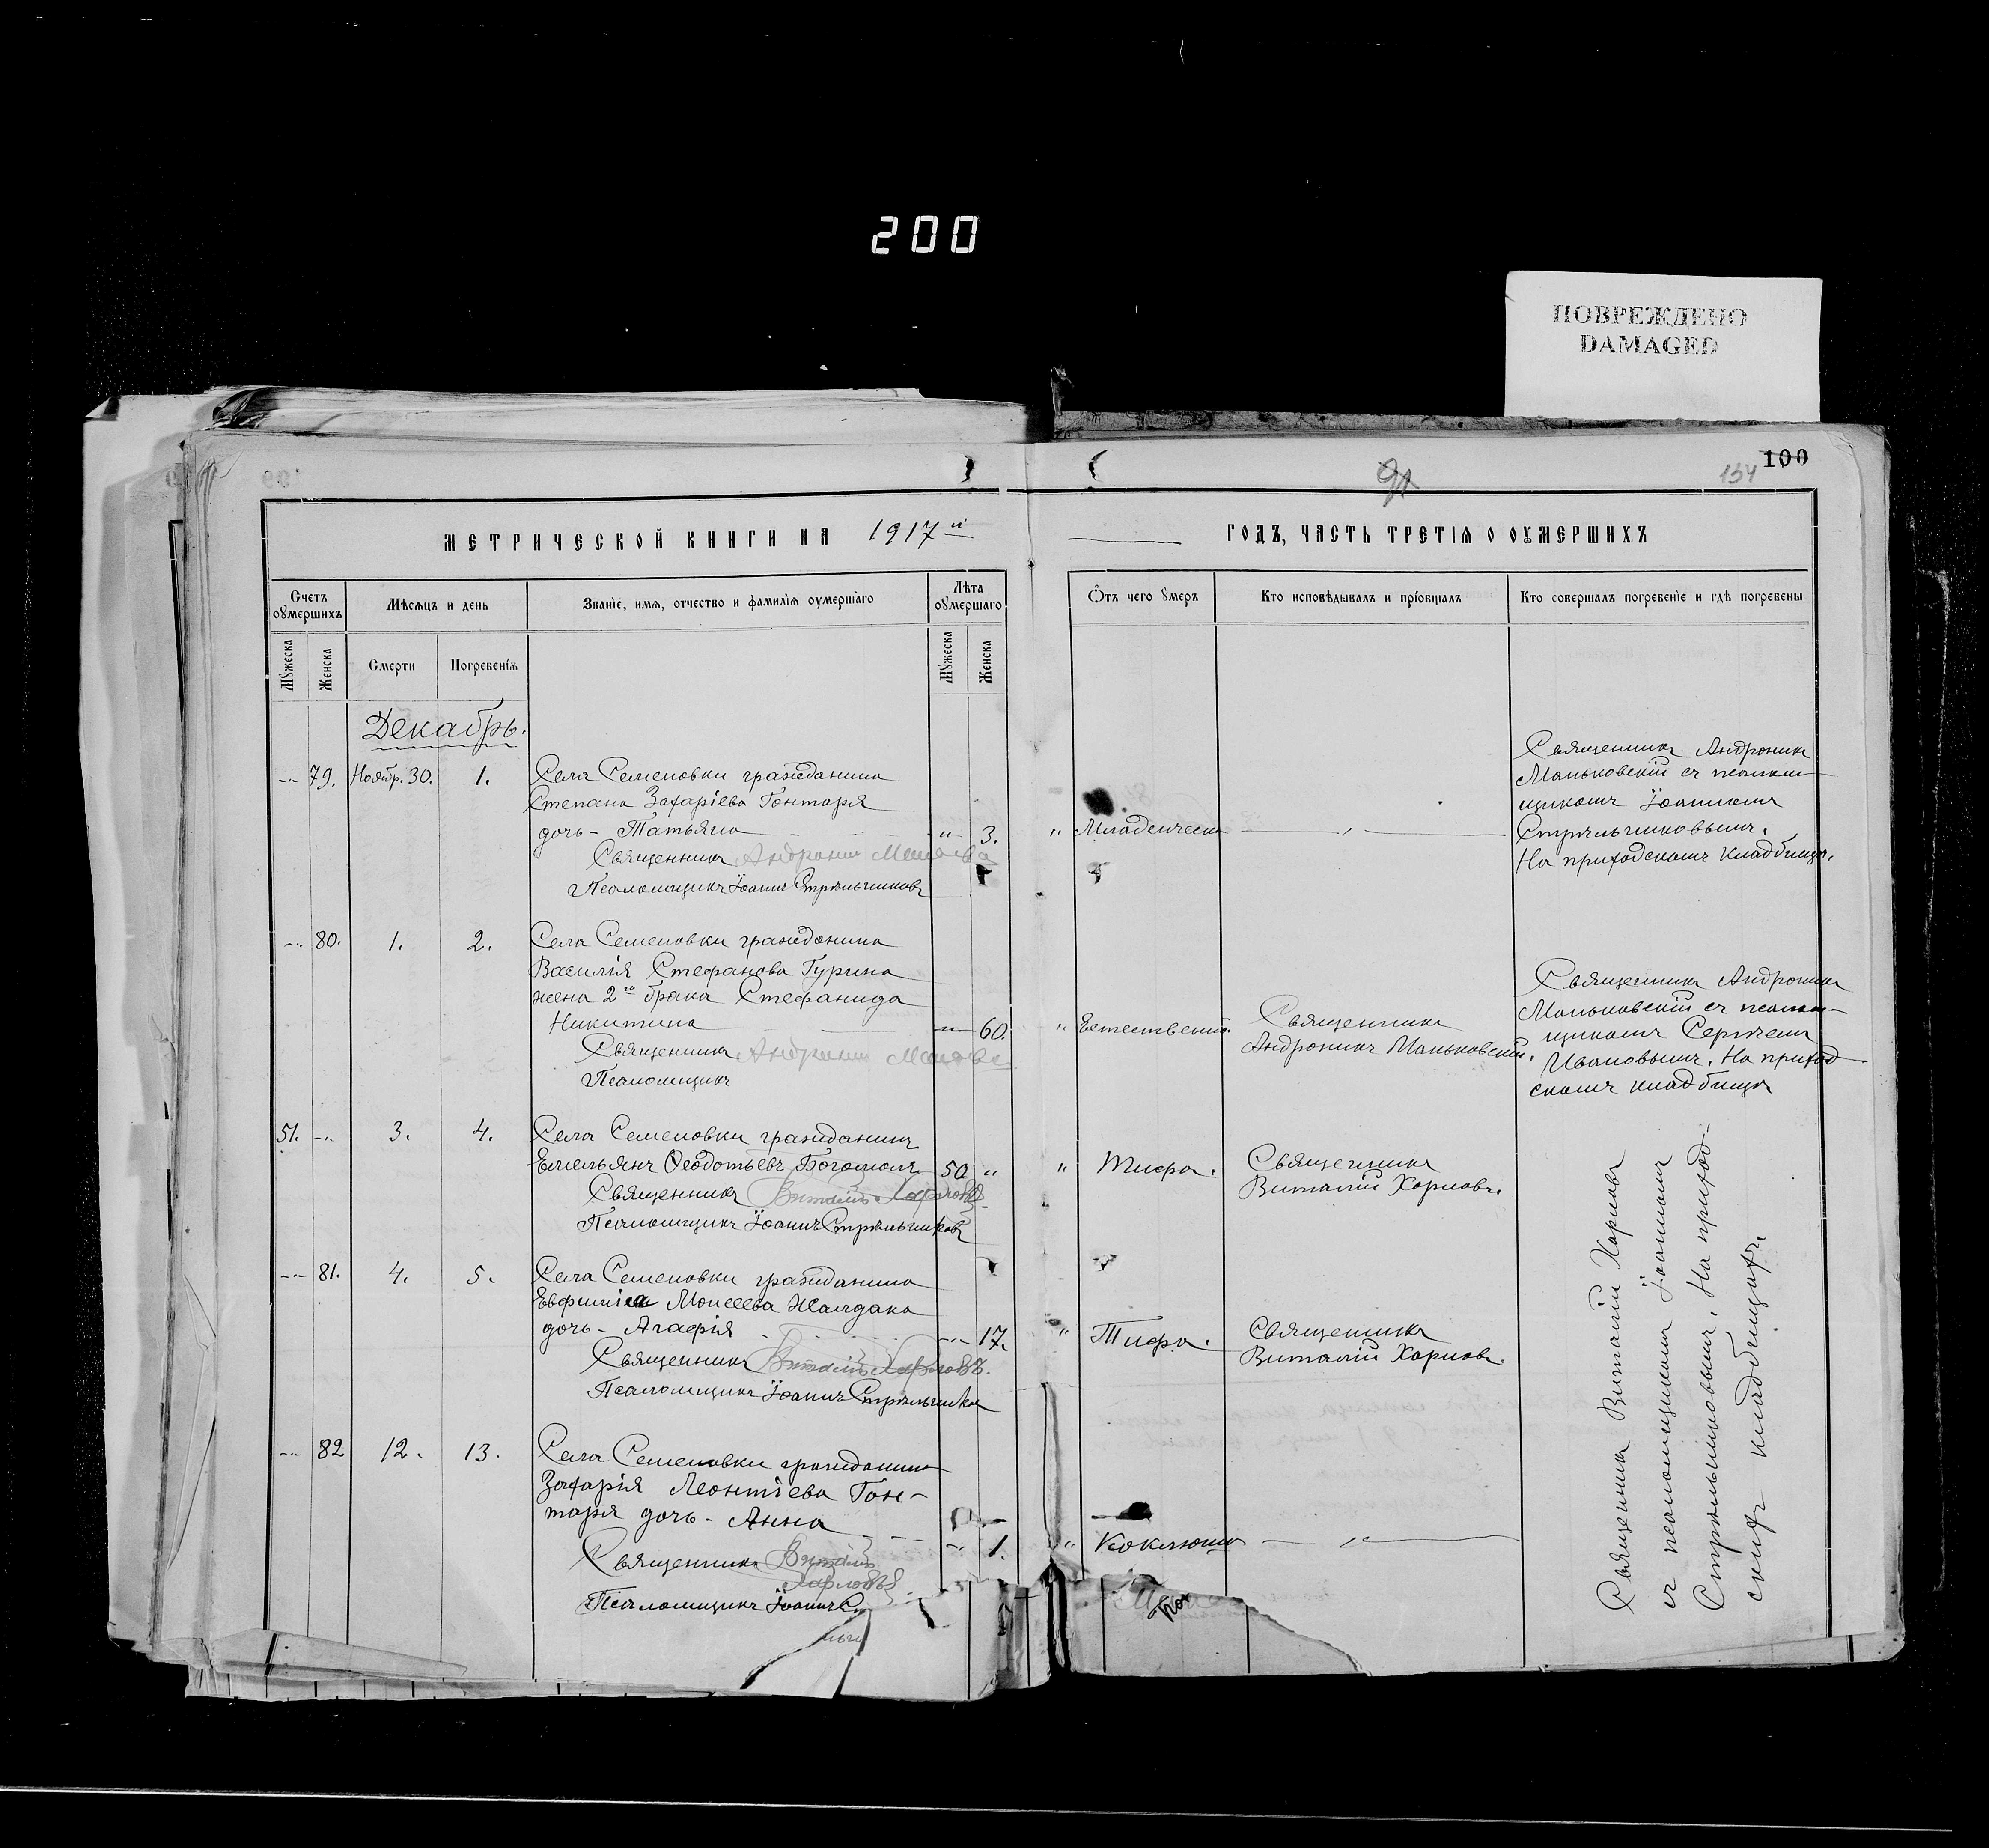 200
ПОВРЕЖДЕНО
DAMAGED
100
134
МЕТРИЧЕСКОЙ КНИГИ НА 1917 й
ГОДЪ, ЧАСТЬ ТРЕТІѦ О ОУМЕРШИХЪ
Счетъ оумершихъ
Мѣсѧцъ и день
Званіе, имѧ, отчество и фамиліѧ оумершаго
Лѣта оумершаго
Ѿтъ чего умеръ
Кто исповѣдывалъ и пріобщалъ
Кто совершалъ погребеніе и гдѣ погребены
Мужеска
Женска
Смерти
Погребеніѧ
Мужеска
Женска
Декабрь.
-„- 79. Ноябр. 30. 1.
Села Семеновки гражданина
Степана Захаріева Гонтаря
дочь - Татьяна „ 3.
Священникъ Андроникъ
Псаломщикъ Іоаннъ Стрѣльниковъ
„ Младенческ
Священникъ Андроникъ
Маньковскій съ псалом
щикомъ Іоанномъ
Стрѣльниковымъ.
На приходскомъ кладбищѣ.
-„- 80. 1. 2.
Села Семеновки гражданина
Василія Стефанова Гурина
жена 2го брака Стефанида
Никитина -„- 60.
Священникъ Андроникъ
Псаломщикъ
„ Естественно.
Священникъ
Андроникъ Маньковскій.
Священникъ Андроникъ
Маньковскій съ псалом-
щикомъ Сергѣемъ
Ивановымъ. На приход
скомъ кладбищѣ
51. -„- 3. 4.
Села Семеновки гражданинъ
Емельянъ Ѳеодотьевъ Богомолъ 50 „
Священникъ Виталій Харловъ
Псаломщикъ Іоаннъ Стрѣльниковъ
„ Тифа.
Священникъ
Виталій Харловъ.
-„- 81. 4. 5.
Села Семеновки гражданина
Евфимія Моисеева Халдака
дочь - Агафія -„- 17.
Священникъ Виталій Харловъ.
Псаломщикъ Іоаннъ Стрѣльников
„ Тифа.
Священникъ
Виталій Харловъ.
-„- 82 12. 13.
Села Семеновки гражданина
Захарія Леонтіева Гон-
таря дочь - Анна
-„- 1.
Священникъ Виталій
Харловъ
Псаломщикъ Іоаннъ С
„ Коклюша
Священникъ Виталій Харловъ
съ псаломщикомъ Іоанномъ
Стрѣльниковымъ. На приход-
скихъ кладбищахъ.